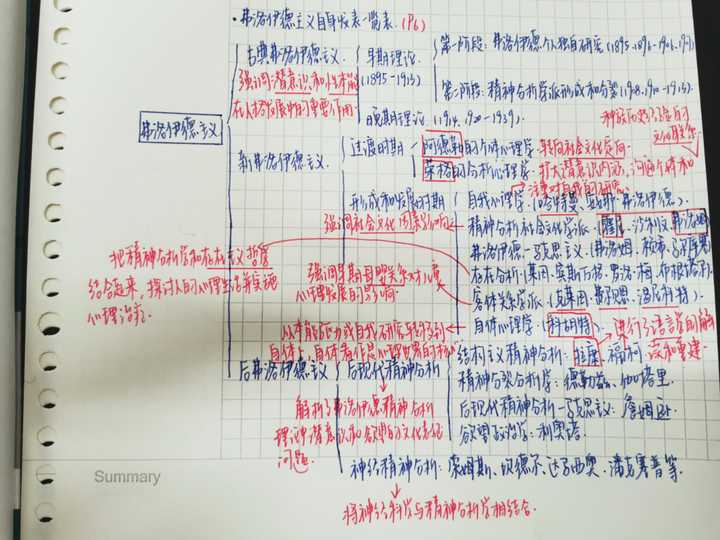 ·弗洛伊德主义自身发表一览表.(P6)
弗洛伊德主义
古典弗洛伊德主义.
强调潜意识和性本能
在人格发展中的重要作用.
早期理论.
(1895-1913)
第一阶段:弗洛伊德个人独自研究
第二阶段:精神分析学派形成和分裂
晚期理论.
新弗洛伊德主义.
过渡时期
阿德勒的个体心理学.转向社会文化定向
荣格的分析心理学.扩大潜意识内涵,沟通个体和
种族历史经验的
形成和发展时期
自我心理学.(哈特曼、安娜·弗洛伊德).
强调社会文化因素影响
精神分析社会文化学派.(霍妮、沙利文、弗洛姆
弗洛伊德-马克思主义.
存在分析:
客体关系学派.(克莱因、费尔贝恩、温尼科特).
自体心理学.(科胡特)
把精神分析学和存在主义哲学
结合起来,探讨人的心理生活并实施
心理治疗.
强调早期母婴关系对儿童
心理发展的影响.
从本能驱力或自我研究转移到
自体上,自体看作是心理世界的核心
后弗洛伊德主义
后现代精神分析
结构主义精神分析:拉康、福柯
进行了语言学的解
读和重建.
精神分裂分析学:德勒兹、伽塔里.
后现代精神分析-马克思主义:詹姆逊.
欲望政治学:利奥塔.
解析了弗洛伊德精神分析
理论中潜意识和欲望的文化表征
问题.
神经精神分析:索姆斯、坎德尔、达马西奥、潘克塞普等.
将神经科学与精神分析学相结合.
Summary